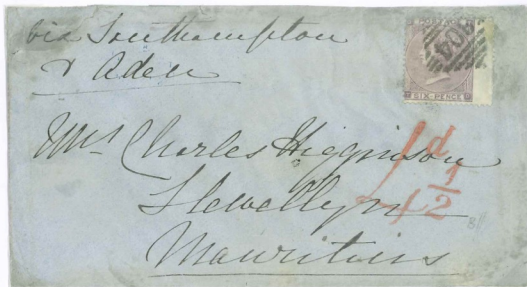 via Southampton
& Aden
POSTAGE
SIX PENCE
Mrs Charles Higginson
Llewellyn
Mauritius
1d
1/2